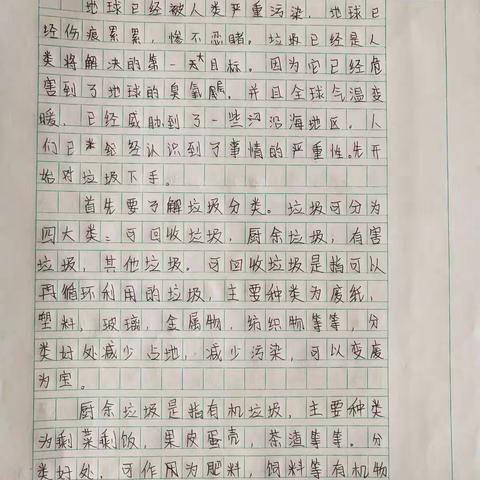 地球已经被人类严重污染，地球已
经伤痕累累，惨不忍睹。垃圾已经是人
类将解决的第一大目标。因为它已经危
害到了地球的臭氧层，并且全球气温变
暖，已经威胁到了一些沿海地区。人
们已经经认识到了事情的严重性。先开
始对垃圾下手。
首先要了解垃圾分类。垃圾可分为
四大类：可回收垃圾，厨余垃圾，有害
垃圾，其他垃圾。可回收垃圾是指可以
再循环利用的垃圾，主要种类为废纸，
塑料，玻璃，金属物，纺织物等等，分
类好处减少占地，减少污染，可以变废
为宝。
厨余垃圾是指有机垃圾，主要种类
为剩菜剩饭，果皮蛋壳，茶渣等等。分
类好处，可作用为肥料，饲料等有机物